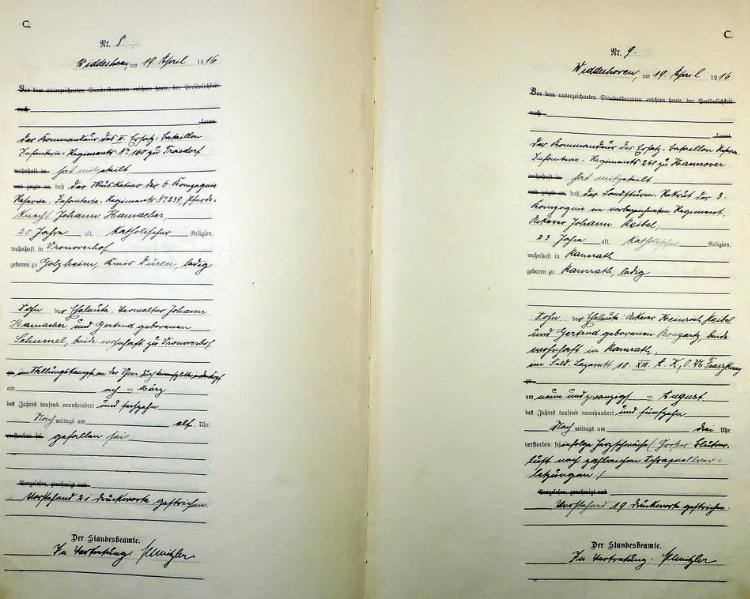 C.
Nr. 8
Widdeshoven, am 19 April 1916
Vor dem unterzeichneten Standesbeamten erschien heute, der Persönlichkeit
nach
kannt,
der Kommandeur des II Ersatz-Bataillon
Infanterie-Regiments No 160 zu Troisdorf
wohnhaft in hat mitgeteilt
und zeigte an, daß der Musketier der 6 Kompagnie
Reserve-Infanterie-Regiments No 239, Pferde-
knecht Johann Hamacher,
20 Jahre alt, katholischer Religion,
wohnhaft in
geboren zu Golzheim, Kreis Düren, ledig
Sohn der Eheleute: Verwalter Johann
Hamacher und Gertrud geborenen
Schumel, beide wohnhaft zu
in Stellungskampf an der Yser
am acht März
des Jahres tausend neunhundert und fünfzehn
Nach mittags um elf Uhr
verstorben sei gefallen sei
Vorgelesen, genehmigt und
Vorstehend 21 Druckworte gestrichen.
Der Standesbeamte.
In Vertretung
C.
Nr. 9.
Widdeshoven, am 19 April 1916
Vor dem unterzeichneten Standesbeamten erschien heute, der Persönlichkeit
nach
kannt,
der Kommandeur des Ersatz-Bataillon Reserve-
Infanterie-Regiments 260 zu Hannover
wohnhaft in hat mitgeteilt
und zeigte an, daß der Landsturm-Rekrut der 3.
Kompagnie im vorbezeichneten Regiment,
Ackerer Johann Keitel,
23 Jahre alt, katholischer Religion,
wohnhaft in Ramrath
geboren zu Ramrath, ledig
Sohn der Eheleute: Ackerer Heinrich Keitel
und Gertrud geborenen Bongartz, beide
wohnhaft in Ramrath,
im Feld-Lazarett 10
am neun und zwanzigsten August
des Jahres tausend neunhundert und fünfzehn
Nach mittags um drei Uhr
verstorben sei infolge Herzschwäche (großer Blutver-
lust nach zahlreichen Schrapnellver-
letzungen)
Vorgelesen, genehmigt und
Vorstehend 19 Druckworte gestrichen.
Der Standesbeamte.
In Vertretung